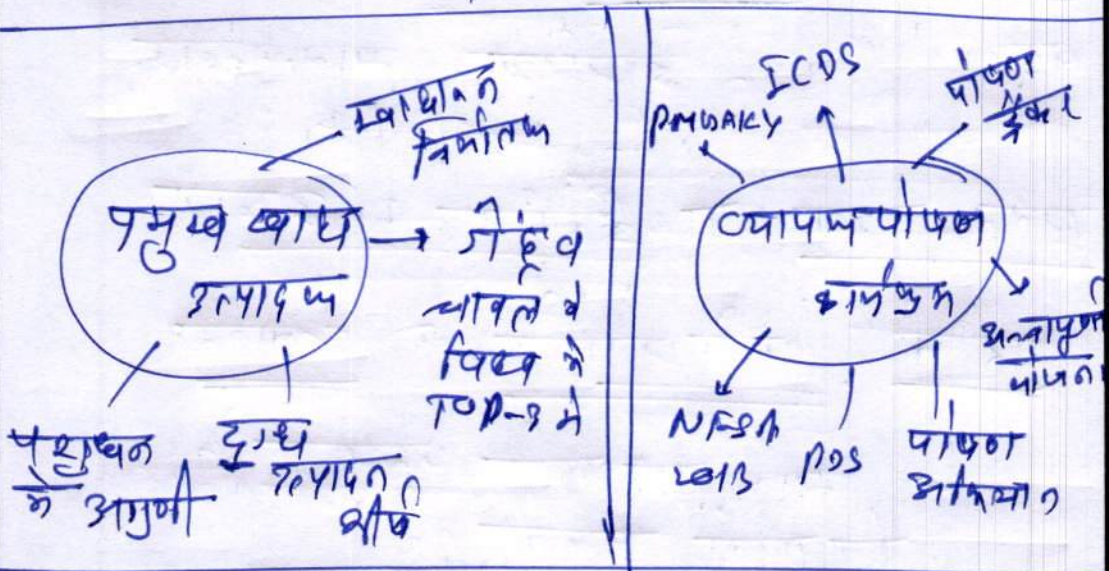 खाद्यान्न
निर्यातक
प्रमुख खाद्य
उत्पादक
→ गेहूं व
चावल में
विश्व में
TOP-3 में
पशुधन
में अग्रणी
दुग्ध
उत्पादन
शीर्ष
ICDS
पोषण
ट्रैकर
व्यापक पोषण
कार्यक्रम
अन्नपूर्णा
योजना
NFSA
2013
PDS
पोषण
अभियान